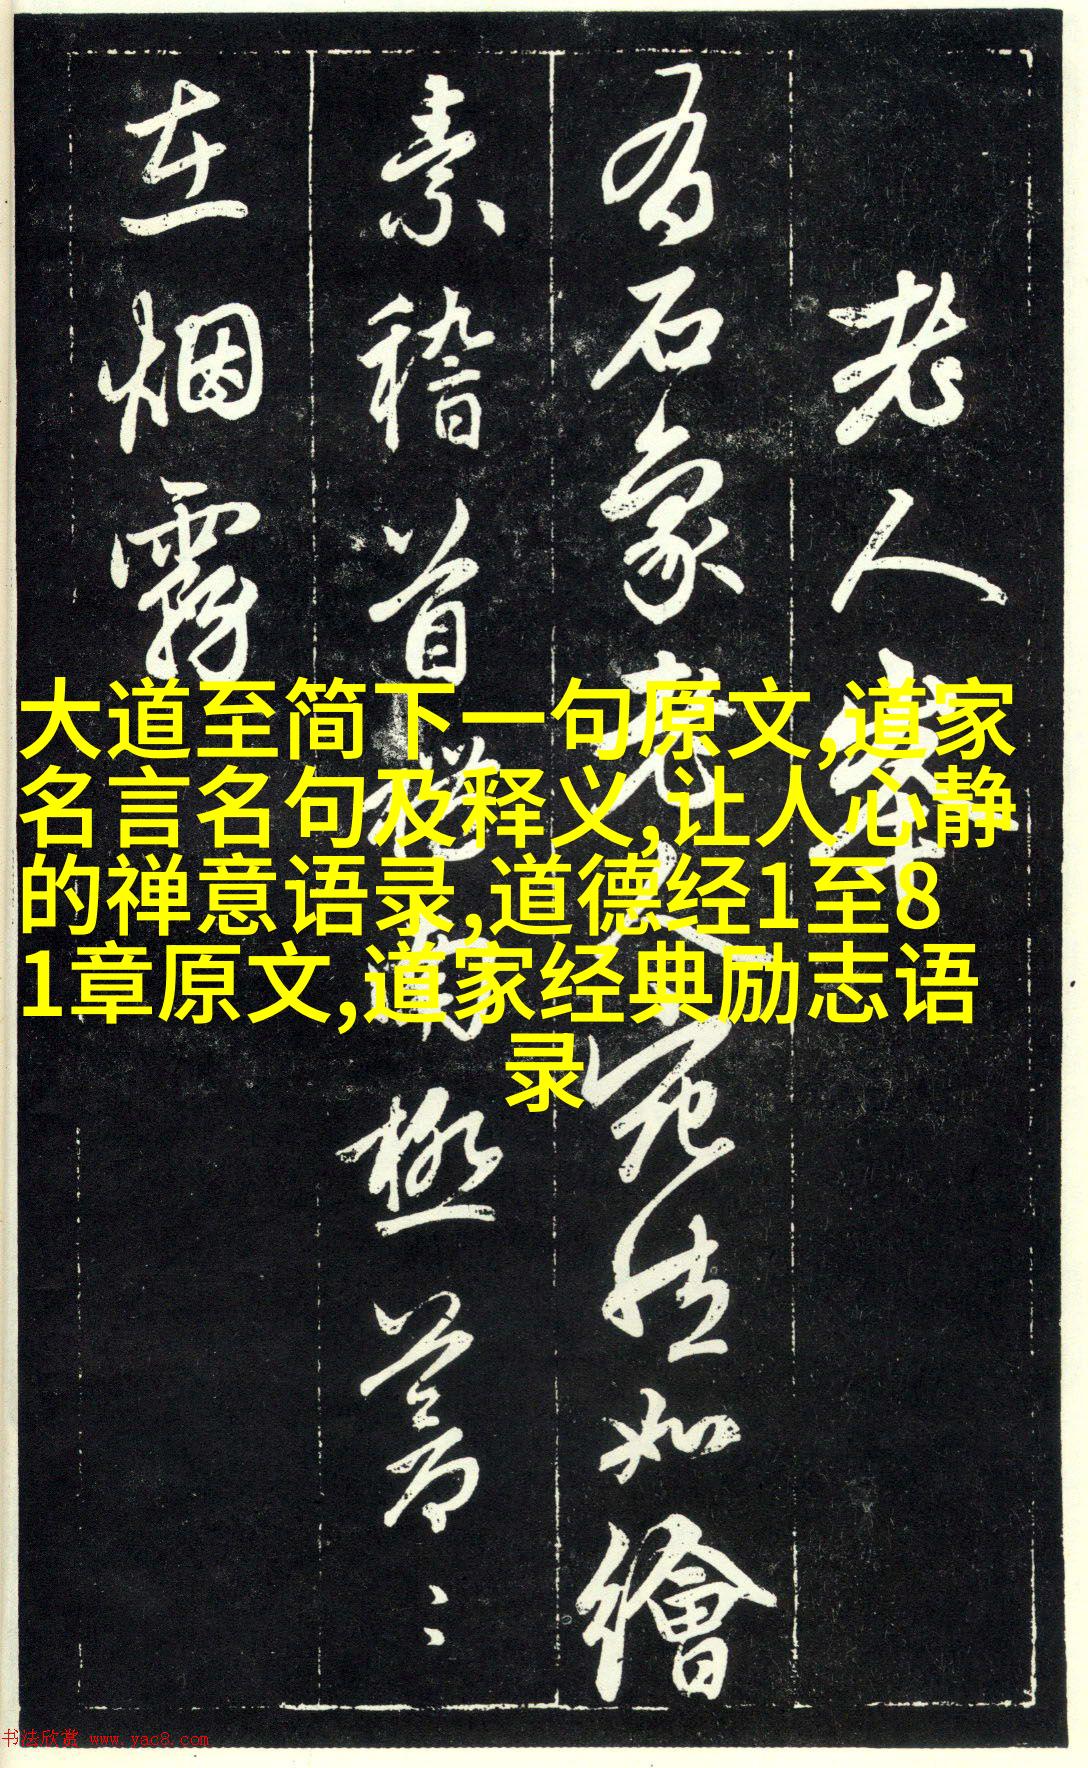 老人峯
有石象老人宛然如繪
素稽首禮南極蒼〻
在烟霧
大道至简下一句原文,道家
名言名句及释义,让人心静
的禅意语录,道德经1至8
1章原文,道家经典励志语
录
书法欣赏 www.yac8.com